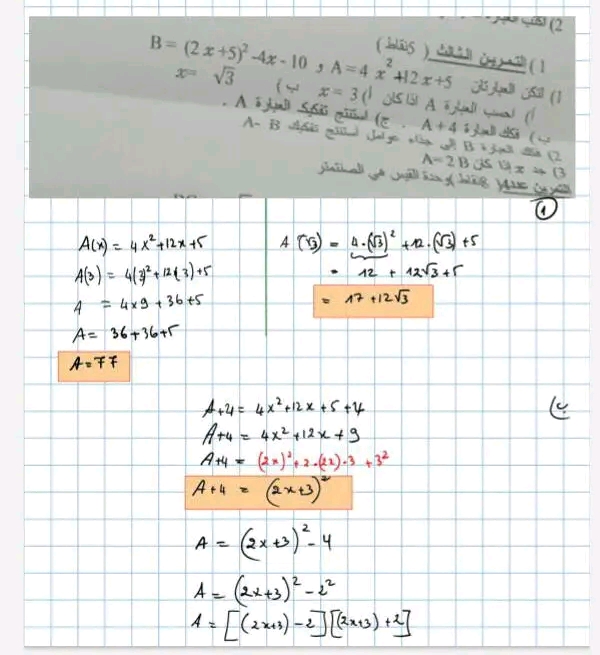 2) اكتب
1) التمرين الثالث ( 5نقاط)
1) لتكن العبارتان A=4 x²+12x+5 و B= (2x+5)²-4x-10
أ) احسب العبارة A اذا كان أ) x = 3 ب) x= √3
ب) فكك العبارة A+4 . ج) استنتج تفكيك العبارة A .
2) فكك العبارة B إلى جذاء عوامل استنتج تفكيك A- B
3) جد x إذا كان A=2B
التمرين نقاط )وحدة القيس هي الصنتمتر
1
A(x) = 4x²+12x+5
A(3) = 4(3)²+12(3)+5
A = 4x9+36+5
A= 36+36+5
A=77
A (√3) = 4.(√3)²+12.(√3)+5
= 12 + 12√3+5
= 17+12√3
ب)
A+4= 4x²+12x+5+4
A+4= 4x²+12x+9
A+4= (2x)²+2.(2x).3+3²
A+4 = (2x+3)²
A = (2x+3)²-4
A= (2x+3)²-2²
A= [(2x+3)-2][(2x+3)+2]